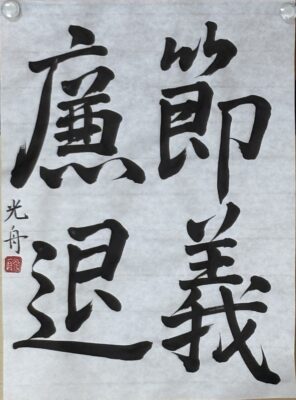 節義
廉退
光舟